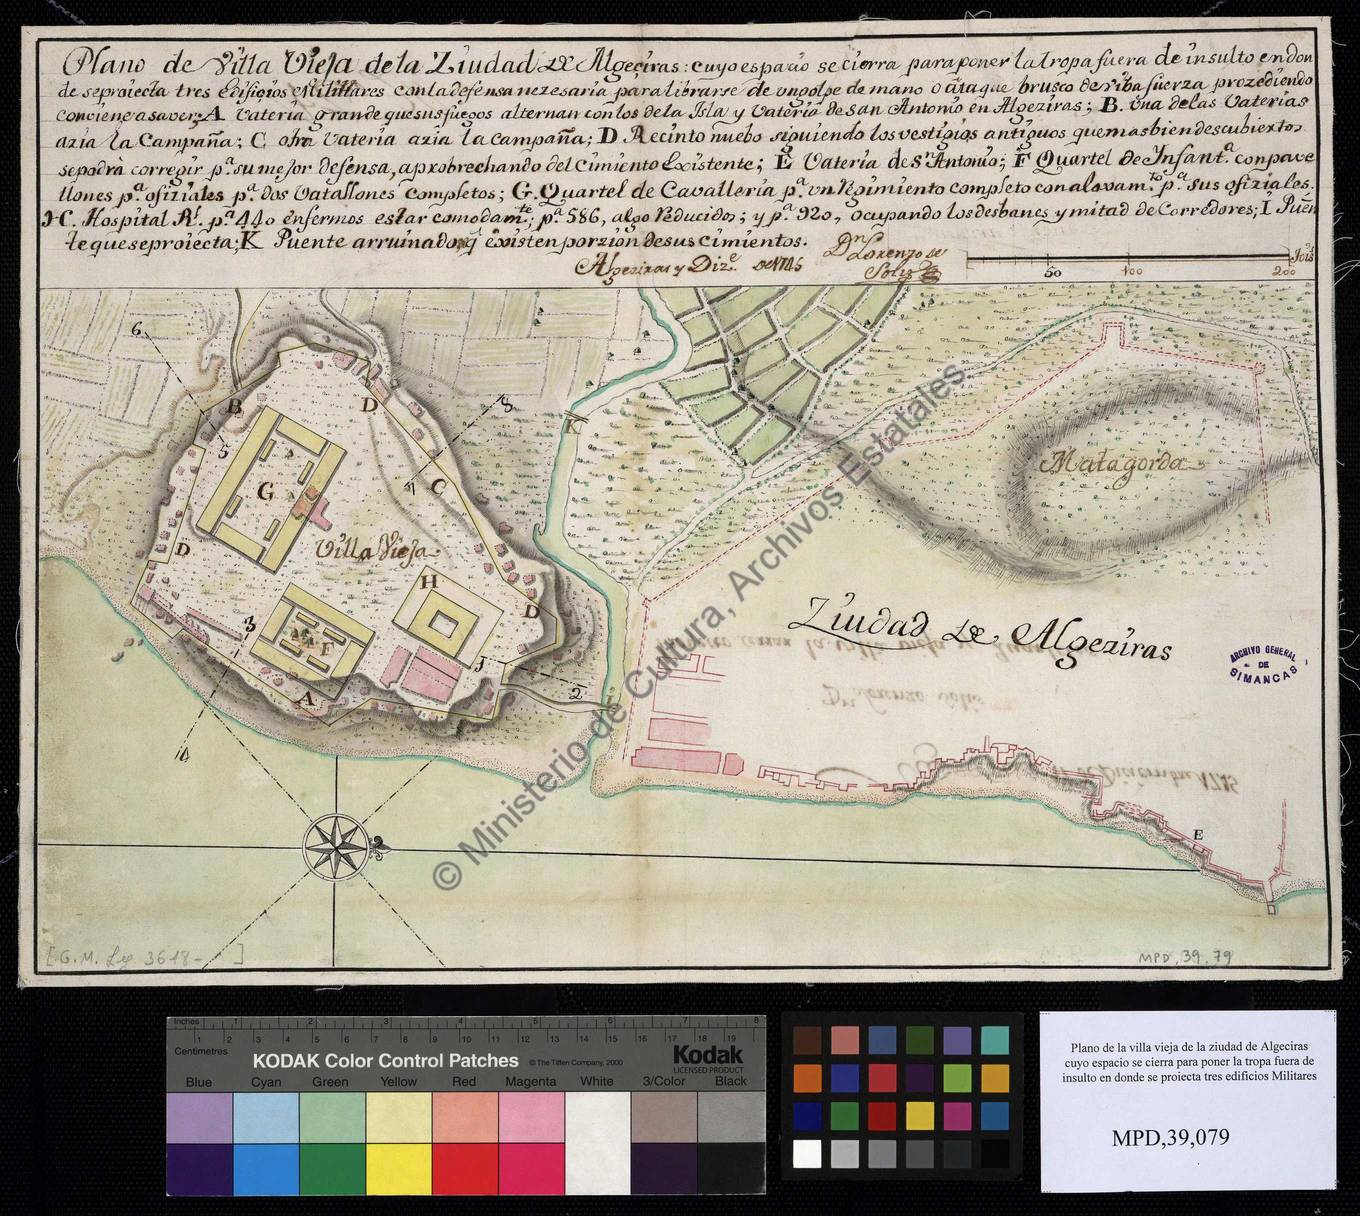 Plano de Villa Vieja de la Ziudad de Algeçiras: cuyo espaçio se cierra para poner la tropa fuera de insulto en don
de se proiecta tres Edifiçios Militares con la defensa nezesaria para librarse de un golpe de mano o ataque brusco de viba fuerza prozediendo
conviene a saver; A Vateria grande que sus fuegos alternan con los de la Isla y Vateria de San Antonio en Algeziras; B. una de las Vaterias
azia la Campaña; C otra Vateria azia la campaña; D Recinto nuebo siguiendo los vestigios antiguos que mas bien descubiertos
se podrà corregir p.ª su mejor defensa, aprobrechando del Cimiento Existente; E Vateria de S.n Antonio; F Quartel de Infant.ª con pave
llones p.ª ofiziales p.ª dos Vatallones completos; G. Quartel de Cavalleria p.ª un Regimiento completo con alovam.to p.ª sus ofiziales.
H. Hospital R.l p.ª 440 enfermos estar comodam.te; p.ª 586, algo reducidos; y p.ª 920, ocupando los desbanes y mitad de Corredores; I Puen
te que se proiecta; K Puente arruinado, q existen porzion de sus cimientos.
Algeziras y Diz.e de 1745
D.n Lorenzo de
Solis
50 100 200
6
8
B
D
K
5
7
C
G
Matagorda
D
Villa Vieja
H
D
3
F
J
Ziudad de Algeziras
ARCHIVO GENERAL
DE
SIMANCAS
A
2
I
4
E
[G.M. Leg. 3618- ]
MPD, 39, 79
© Ministerio de Cultura, Archivos Estatales.
Inches 1 2 3 4 5 6 7 8
Centimetres 1 2 3 4 5 6 7 8 9 10 11 12 13 14 15 16 17 18 19
KODAK Color Control Patches © The Tiffen Company, 2000 Kodak
LICENSED PRODUCT
Blue Cyan Green Yellow Red Magenta White 3/Color Black
Plano de la villa vieja de la ziudad de Algeciras
cuyo espacio se cierra para poner la tropa fuera de
insulto en donde se proiecta tres edificios Militares
MPD,39,079